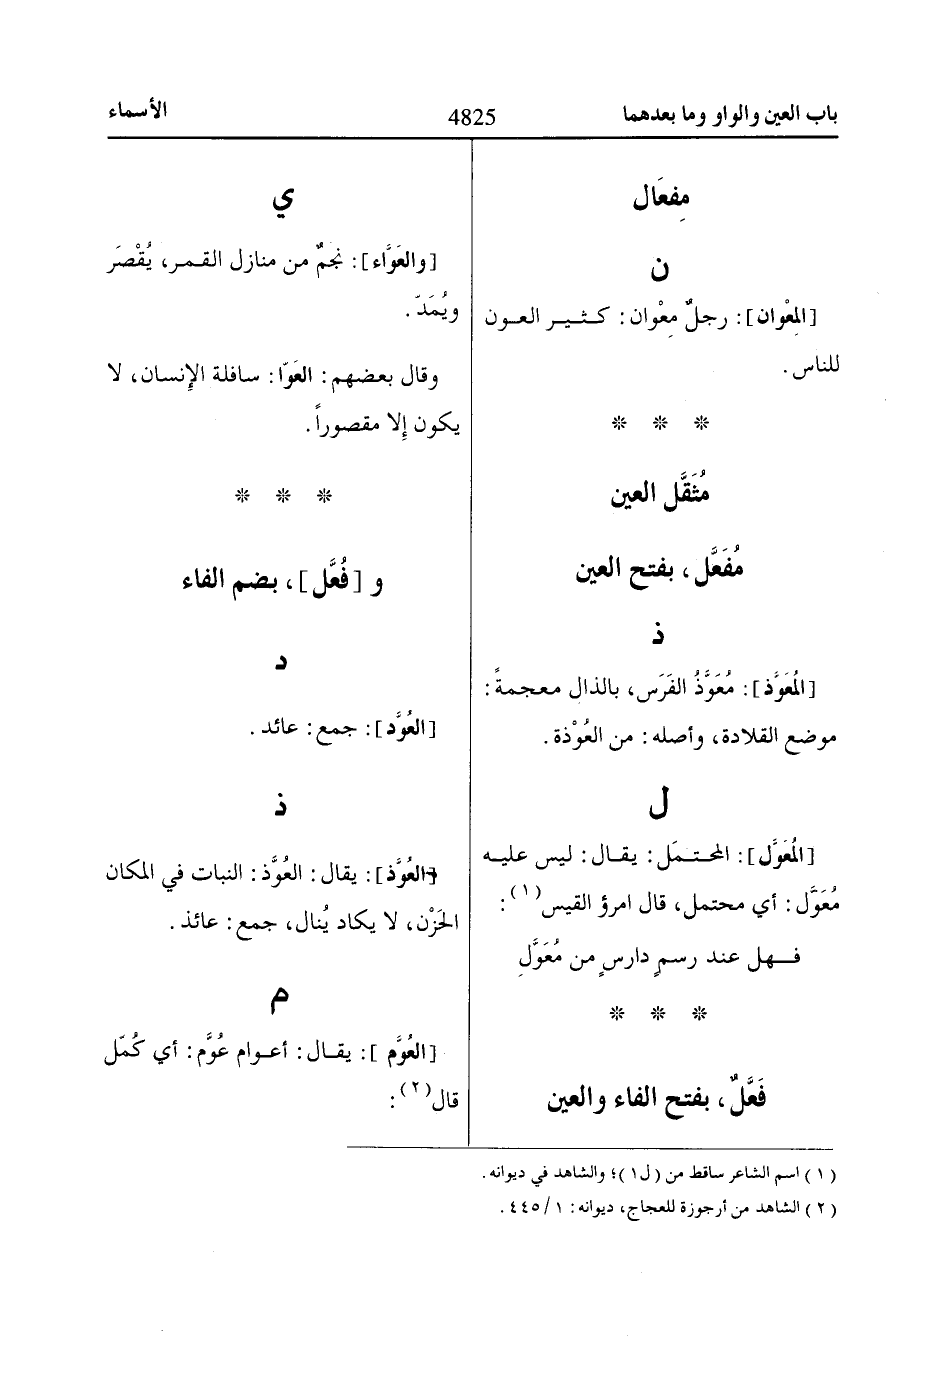 باب العين والواو وما بعدهما
4825
الأسماء
مِفعَال
ن
[المِعْوان]: رجلٌ مِعْوان: كثير العون
للناس.
* * *
مُثَقَّل العين
مُفَعَّل، بفتح العين
ذ
[المُعَوَّذ]: مُعَوَّذُ الفَرَس، بالذال معجمةً:
موضع القلادة، وأصله: من العُوْذة.
ل
[المُعَوَّل]: المحتمَل: يقال: ليس عليه
مُعَوَّل: أي محتمل، قال امرؤ القيس(١):
فهل عند رسمٍ دارسٍ من مُعَوَّلِ
* * *
فَعَّلٌ، بفتح الفاء والعين
ي
[والعَوَّاء]: نجمٌ من منازل القمر، يُقْصَر
ويُمَدّ.
وقال بعضهم: العَوّا: سافلة الإِنسان، لا
يكون إِلا مقصوراً.
* * *
و [فُعَّل]، بضم الفاء
د
[العُوَّد]: جمع: عائد.
ذ
[العُوَّذ]: يقال: العُوَّذ: النبات في المكان
الحَزْن، لا يكاد يُنال، جمع: عائذ.
م
[العُوَّم]: يقال: أعوام عُوَّم: أي كُمّل
قال(٢):
(١) اسم الشاعر ساقط من (ل١)؛ والشاهد في ديوانه.
(٢) الشاهد من أرجوزة للعجاج، ديوانه: ١/ ٤٤٥.